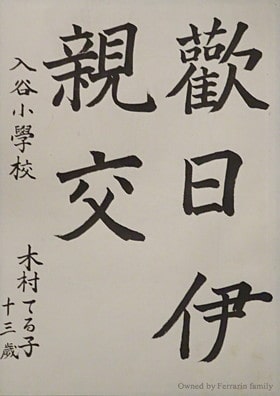 歡日伊
親交
入谷小學校
木村てる子
十三歲
Owned by Ferrazio family